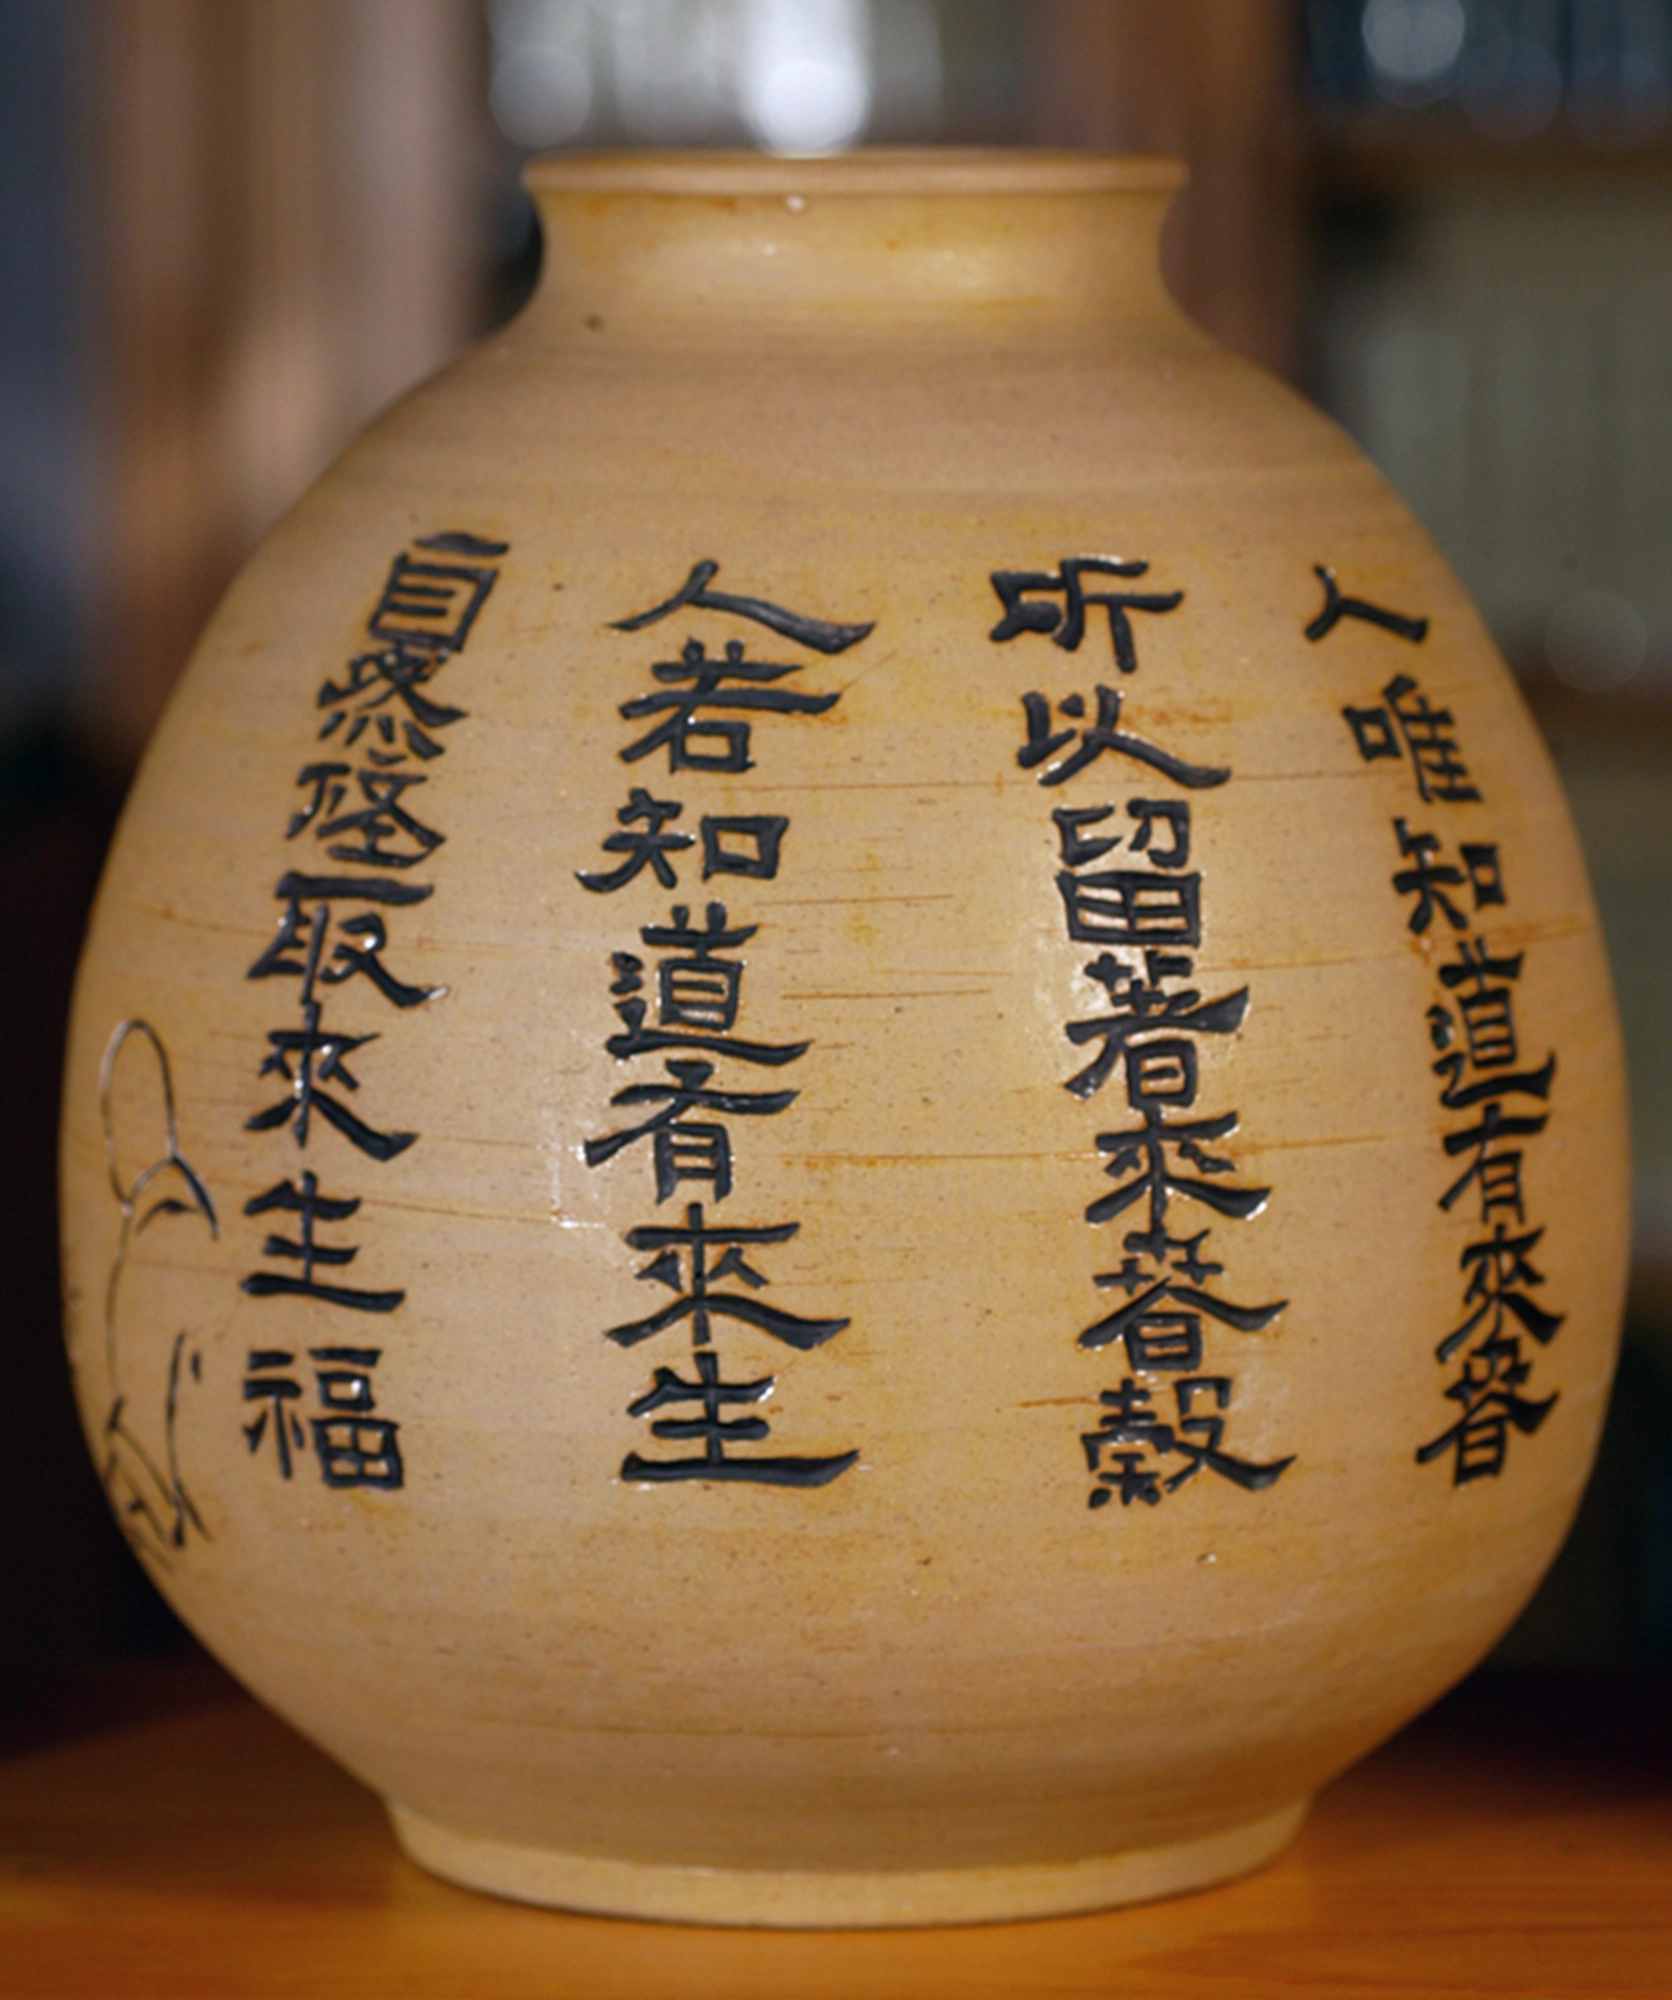 人唯知道有來春
所以留著來春穀
人若知道有來生
自然修取來生福